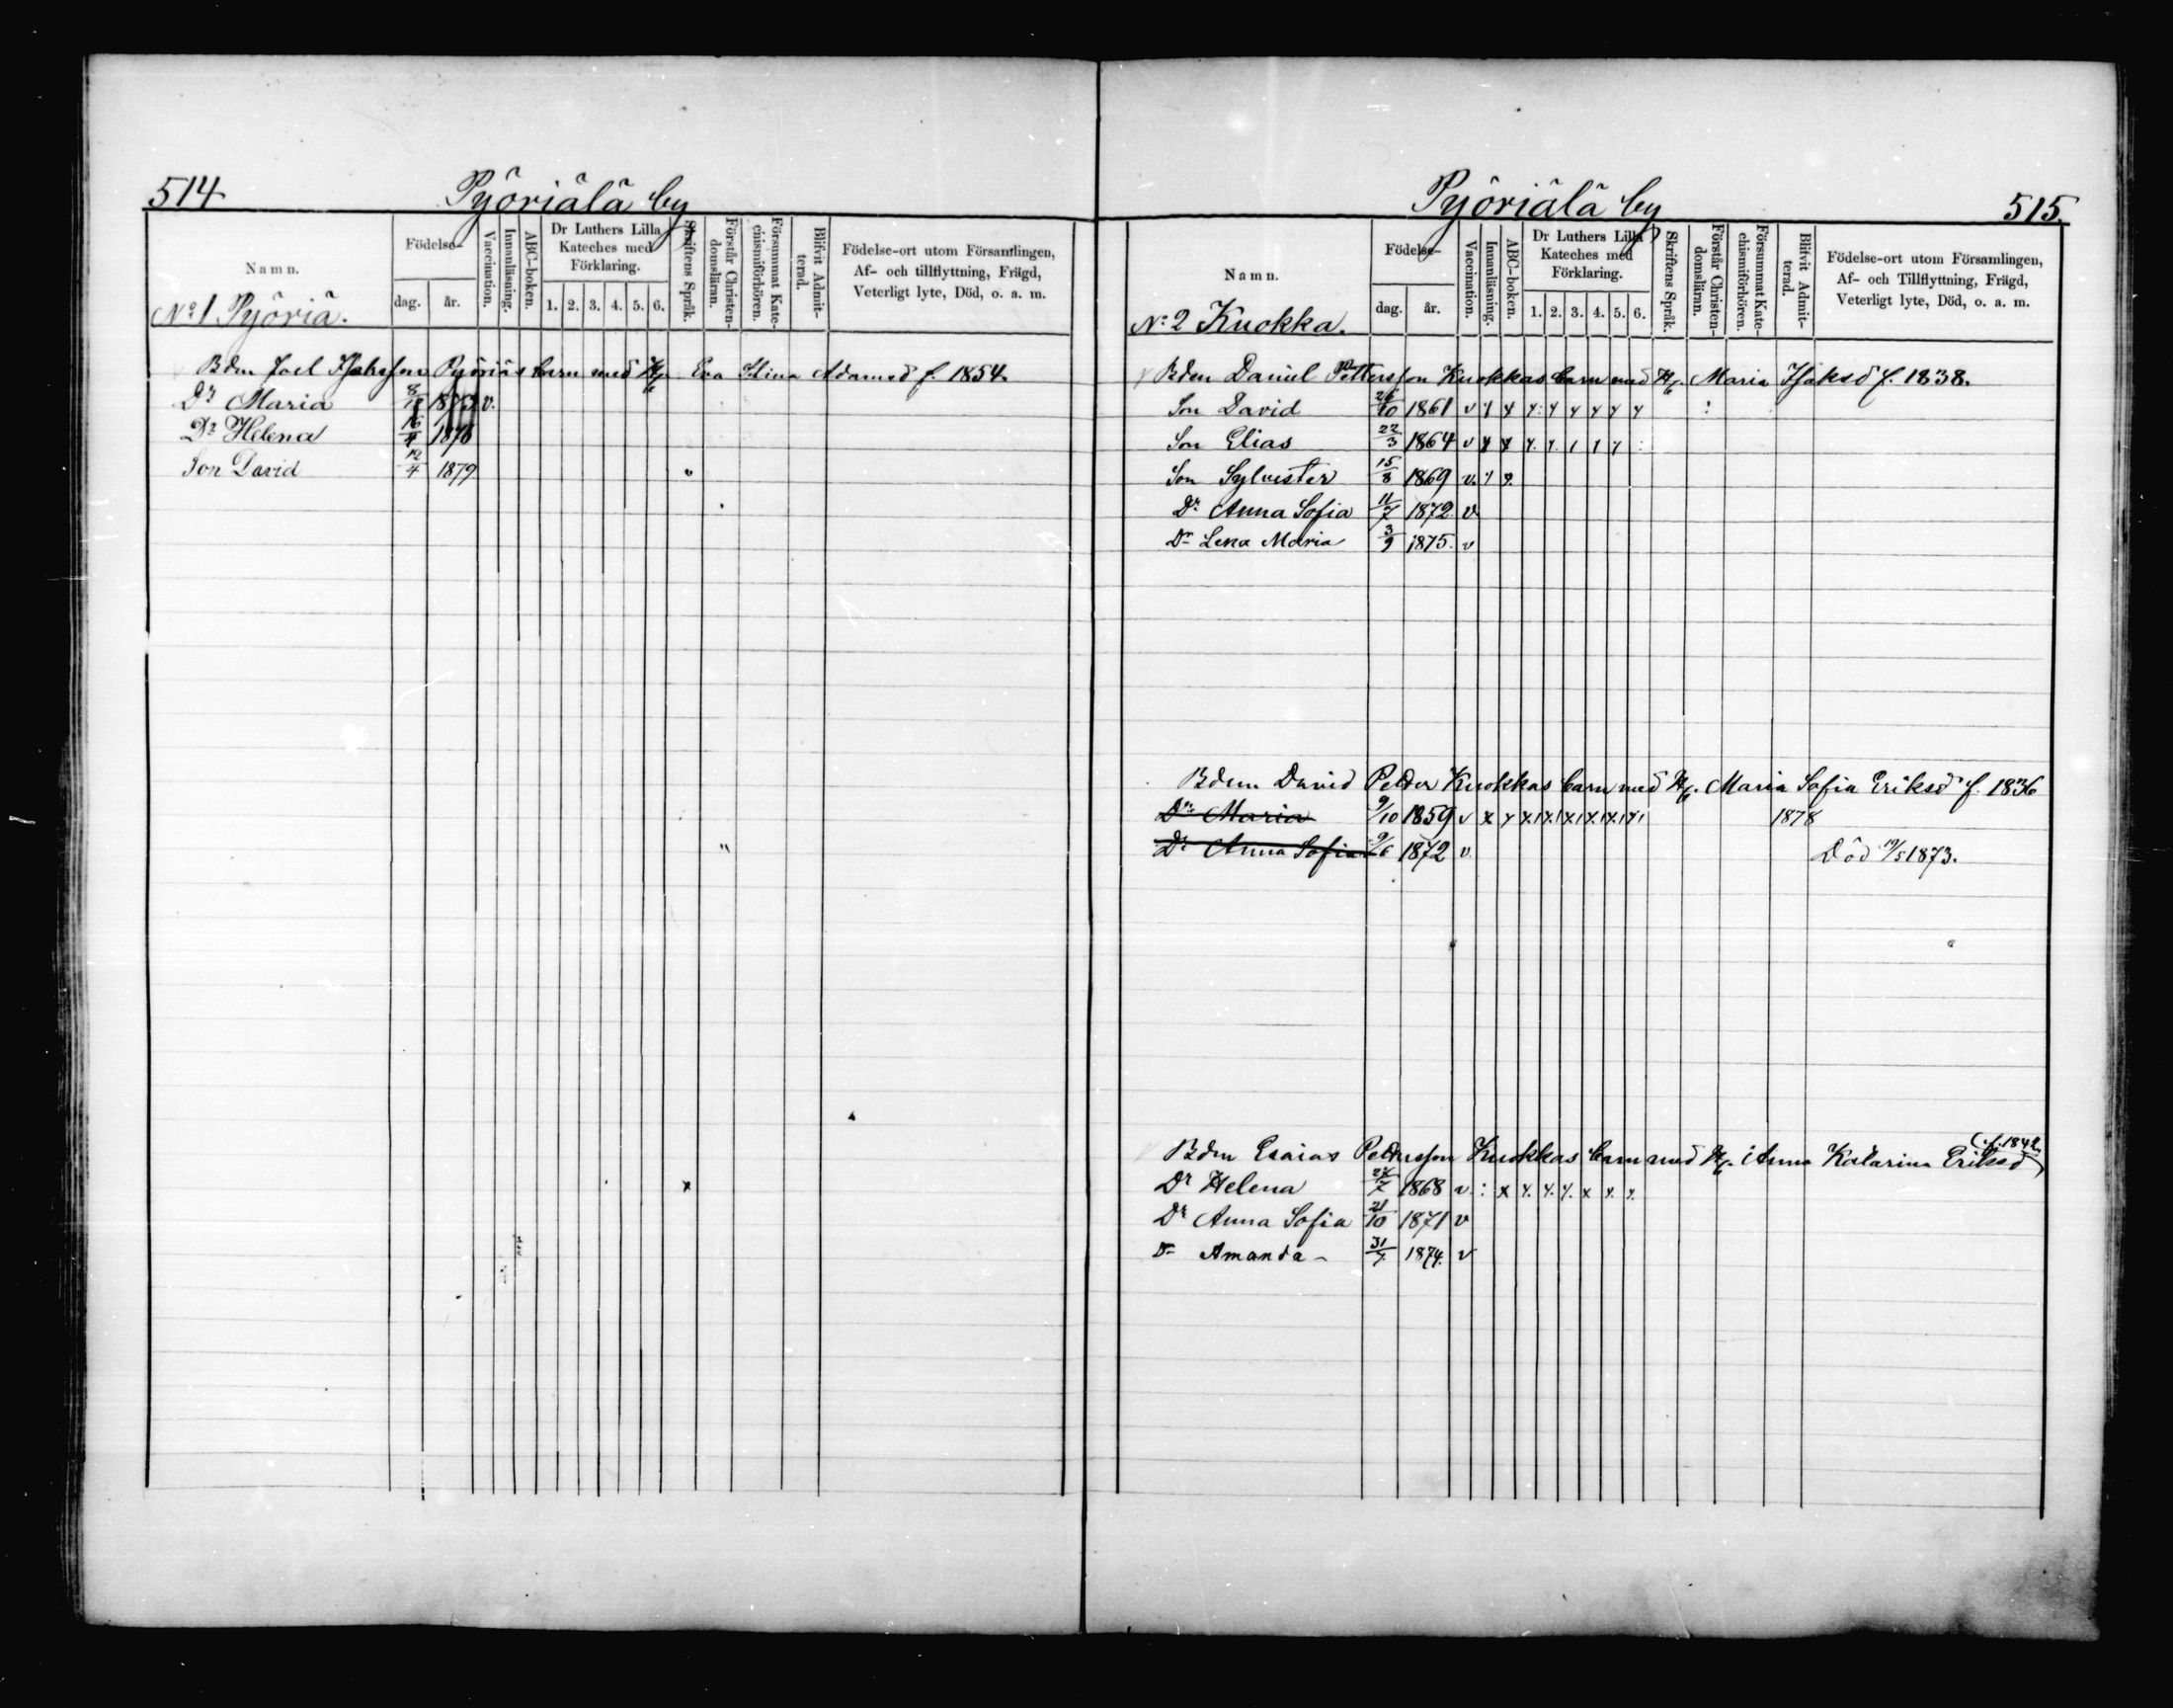 514
Pyöriälä by
Namn.
Födelse-
dag.
år.
Vaccination.
Innanläsning.
ABC-boken.
Dr Luthers Lilla
Kateches med
Förklaring.
1. 2. 3. 4. 5. 6.
Skriftens Språk.
Förstår Christen-
domsläran.
Försummat Kate-
chismiförhören.
Blifvit Admit-
terad.
Födelse-ort utom Församlingen,
Af- och tillflyttning, Frägd,
Veterligt lyte, Död, o. a. m.
No 1 Pyöriä.
Bdm Joel Pyöriäs barn med H. Eva Stina Adamsd f. 1854.
Dr Maria v.
Dr Helena 16/4 1876
Son David 12/4 1879
Pyöriälä by
515.
Namn.
Födelse-
dag.
år.
Vaccination.
Innanläsning.
ABC-boken.
Dr Luthers Lilla
Kateches med
Förklaring.
1. 2. 3. 4. 5. 6.
Skriftens Språk.
Förstår Christen-
domsläran.
Försummat Kate-
chismiförhören.
Blifvit Admit-
terad.
Födelse-ort utom Församlingen,
Af- och Tillflyttning, Frägd,
Veterligt lyte, Död, o. a. m.
No 2 Kuokka.
Bdm Daniel Pettersson Kuokkas barn med H. Maria Isaksd f. 1838.
Son David 26/10 1861 v
Son Elias 22/3 1864 v
Son Sylvester 15/8 1869 v.
Dr Anna Sofia 11/7 1872 v
Dr Lena Maria 3/9 1875. v
Bdm David Petter Kuokkas barn med H. Maria Sofia Eriksd f. 1836
Dr Maria 9/10 1859 v x 1878
Dr Anna Sofia 9/6 1872 v. Död 19/5 1873.
Bdm Esaias Pettersson Kuokkas barn med H. Anna Katarina Eriksd
(f. 1842
Dr Helena 1868 v.
Dr Anna Sofia 21/10 1871 v
Dr Amanda 31/7 1874. v